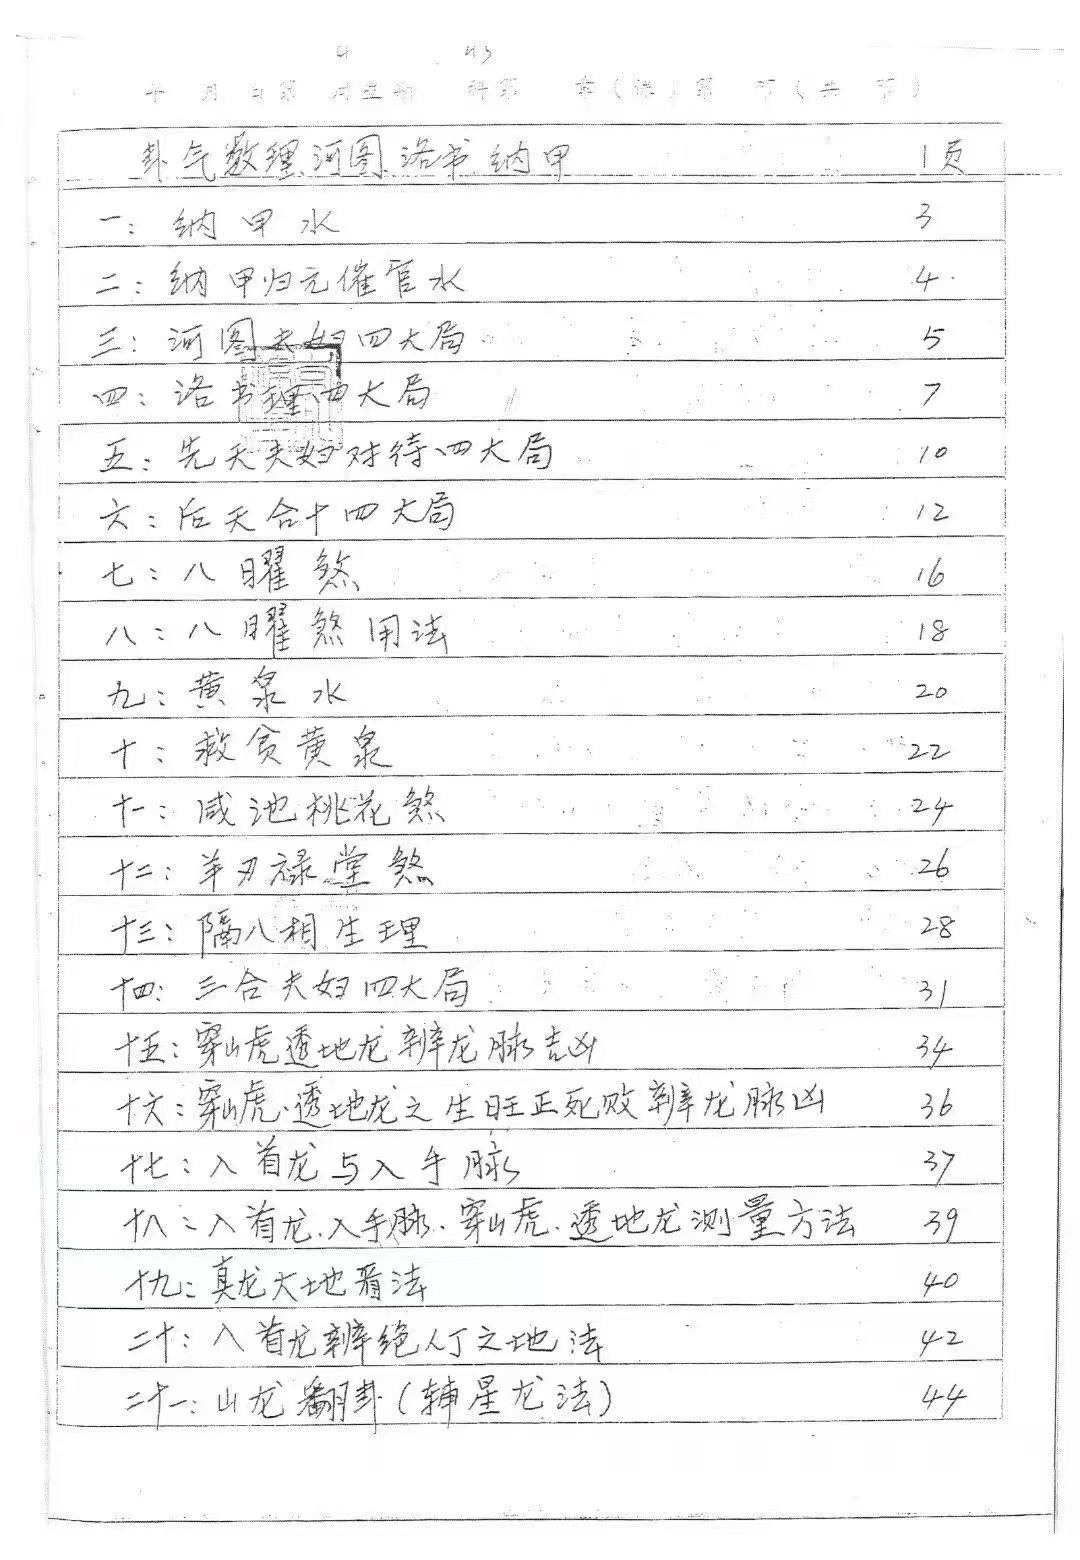 4 43
年 月 日第 周星期 科第 章(课)第 节(共 节)
卦气数理河图洛书纳甲 1页
一：纳甲水 3
二：纳甲归元催官水 4
三：河图夫妇四大局 5
四：洛书理四大局 7
五：先天夫妇对待四大局 10
六：后天合十四大局 12
七：八曜煞 16
八：八曜煞用法 18
九：黄泉水 20
十：救贫黄泉 22
十一：咸池桃花煞 24
十二：羊刃禄堂煞 26
十三：隔八相生理 28
十四：三合夫妇四大局 31
十五：穿山虎透地龙辨龙脉吉凶 34
十六：穿山虎.透地龙之生旺正死败辨龙脉凶 36
十七：入首龙与入手脉 37
十八：入首龙.入手脉.穿山虎.透地龙测量方法 39
十九：真龙大地看法 40
二十：入首龙辨绝人丁之地法 42
二十一：山龙翻卦(辅星龙法) 44